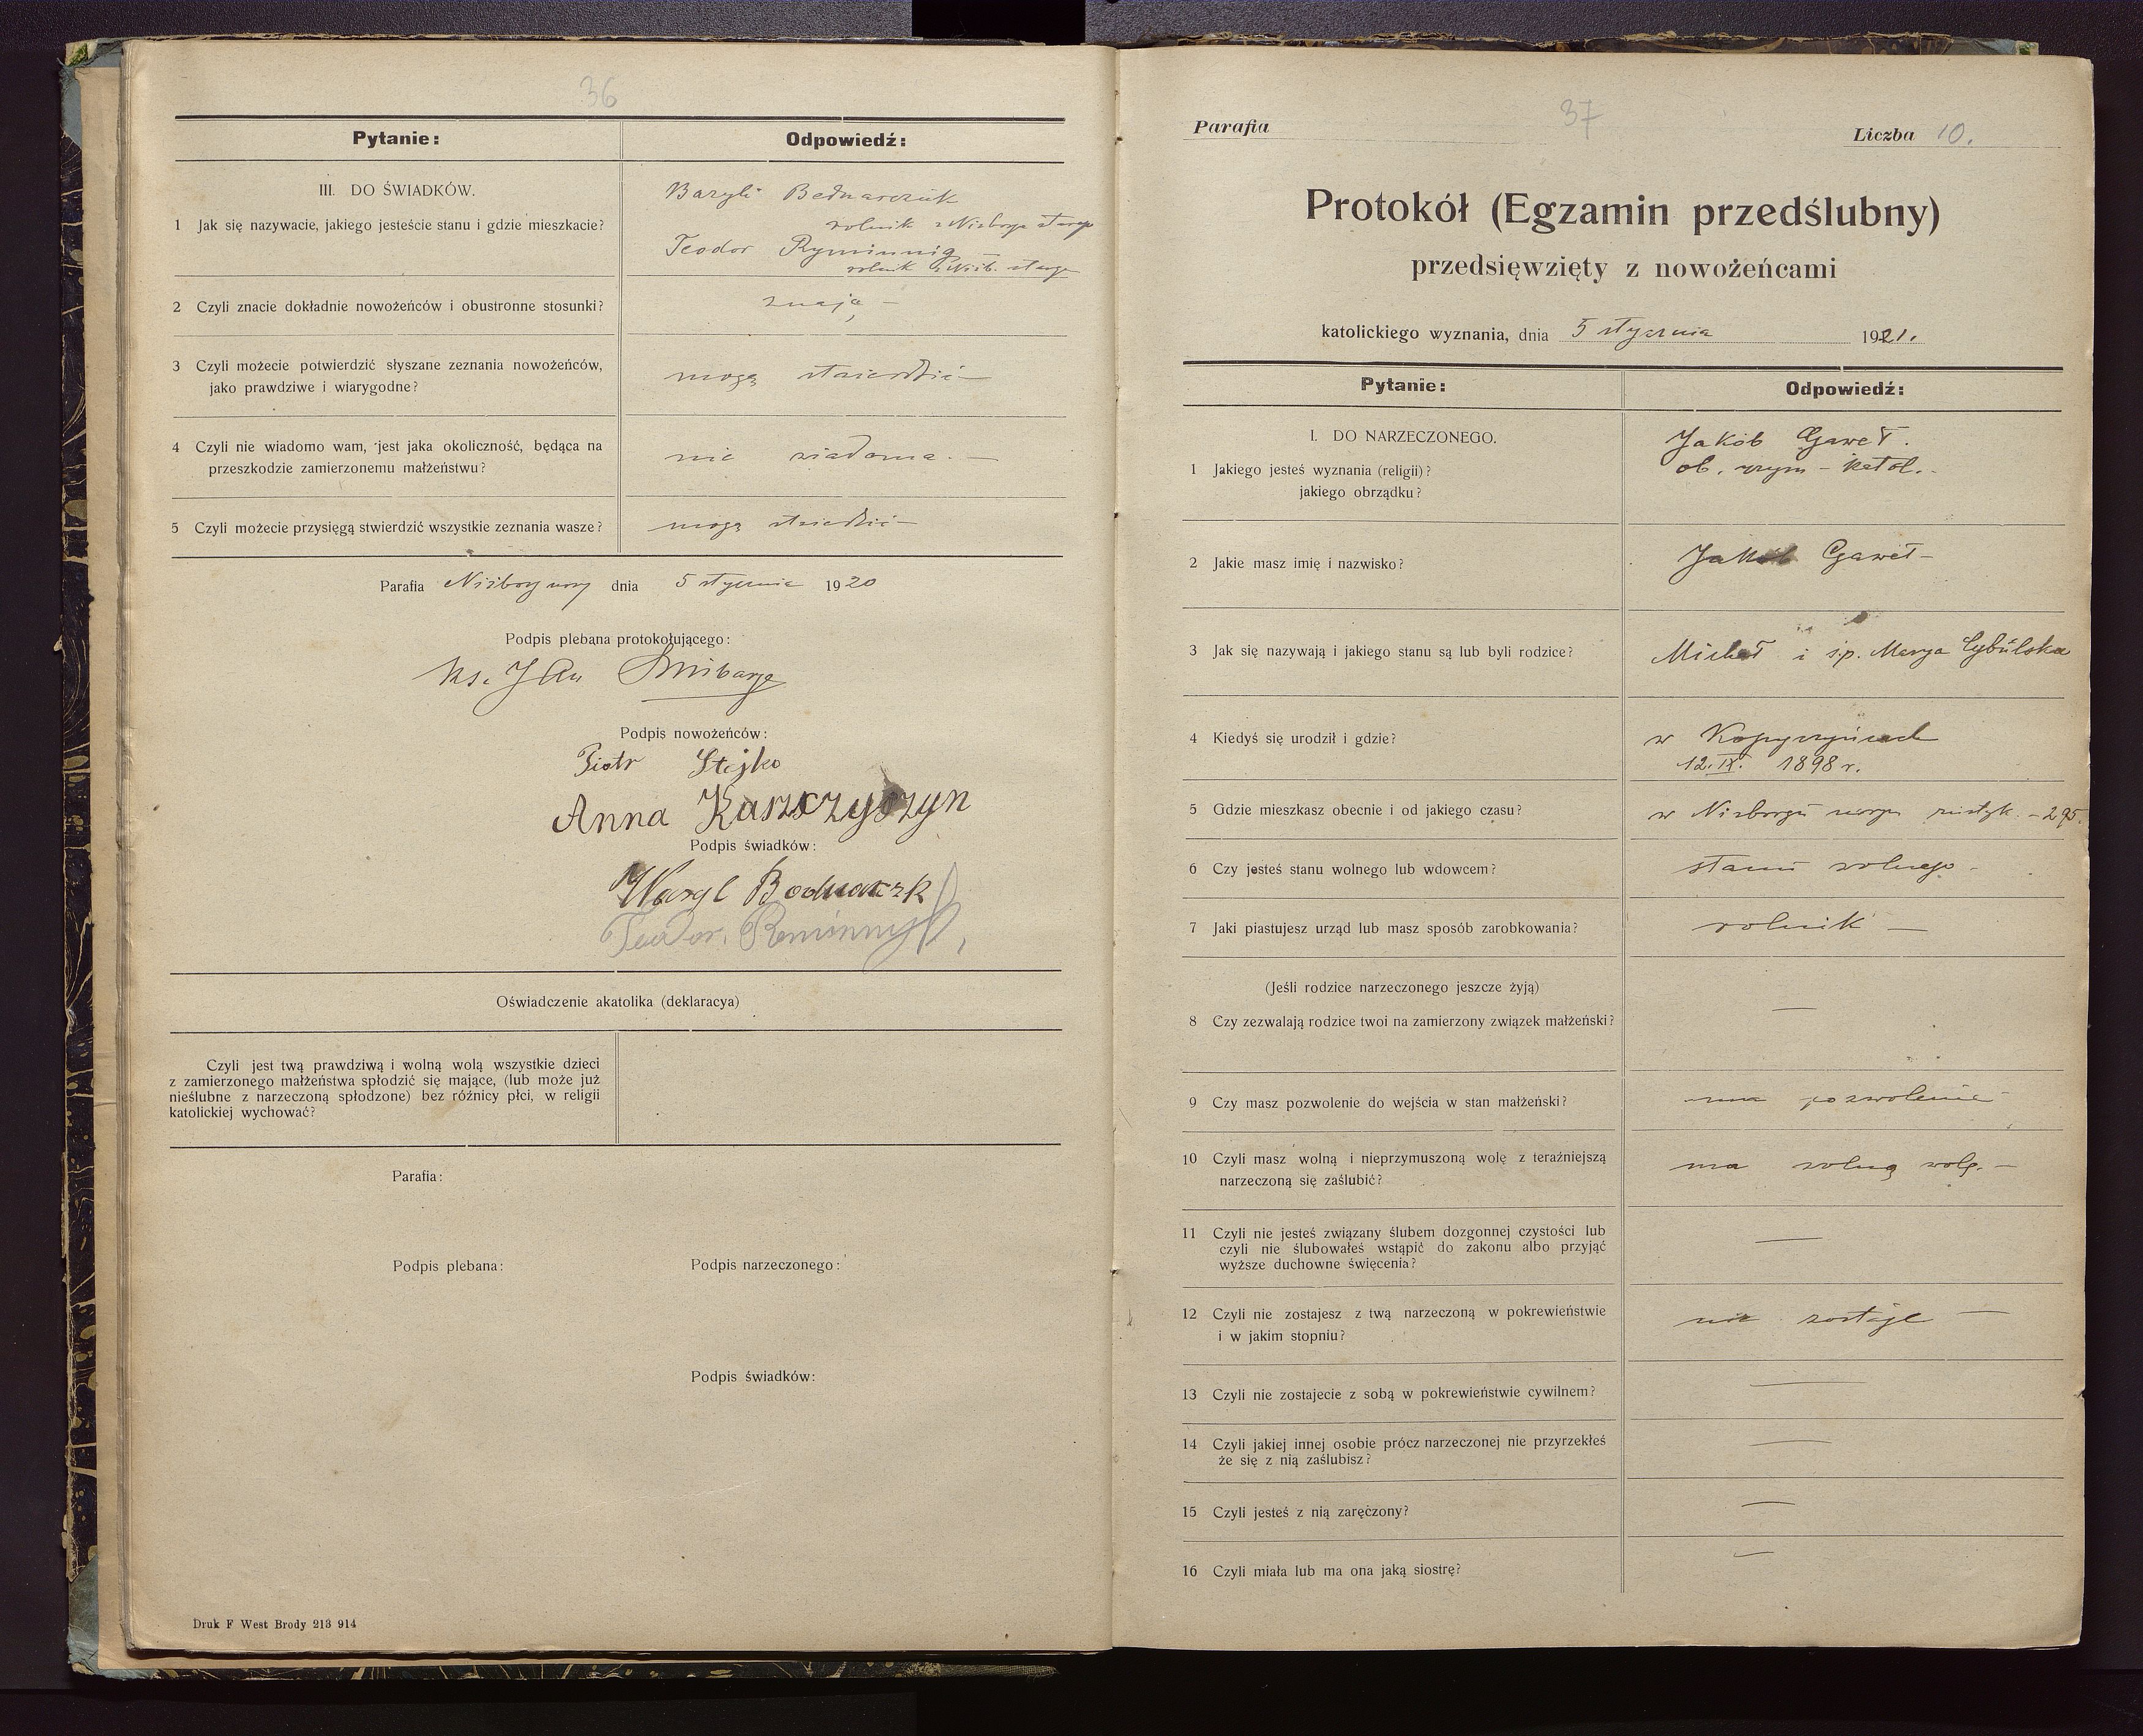 36
Pytanie:
Odpowiedź:
III. DO ŚWIADKÓW.
1 Jak się nazywacie, jakiego jesteście stanu i gdzie mieszkacie?
Bazyli Bednarczuk
rolnik z Niżborga starego
Teodor
rolnik z Niżb. starego
2 Czyli znacie dokładnie nowożeńców i obustronne stosunki?
znają —
3 Czyli możecie potwierdzić słyszane zeznania nowożeńców,
jako prawdziwe i wiarygodne?
mogą stwierdzić —
4 Czyli nie wiadomo wam, jest jaka okoliczność, będąca na
przeszkodzie zamierzonemu małżeństwu?
nie wiadoma. —
5 Czyli możecie przysięgą stwierdzić wszystkie zeznania wasze?
mogą stwierdzić —
Parafia Niżborg nowy dnia 5 stycznia 1920
Podpis plebana protokołującego:
ks. Jan
Podpis nowożeńców:
Piotr Stejko
Anna Kaszczyszyn
Podpis świadków:
Wasyl Bodnarczk
Teodor.
Oświadczenie akatolika (deklaracya)
Czyli jest twą prawdziwą i wolną wolą wszystkie dzieci
z zamierzonego małżeństwa spłodzić się mające, (lub może już
nieślubne z narzeczoną spłodzone) bez różnicy płci, w religii
katolickiej wychować?
Parafia:
Podpis plebana:
Podpis narzeczonego:
Podpis świadków:
Druk F West Brody 213 914
37
Parafia
Liczba 10.
Protokół (Egzamin przedślubny)
przedsięwzięty z nowożeńcami
katolickiego wyznania, dnia 5 stycznia 1921.
Pytanie:
Odpowiedź:
I. DO NARZECZONEGO.
1 Jakiego jesteś wyznania (religii)?
jakiego obrządku?
Jakób Gaweł.
ob. rzym - katol. -
2 Jakie masz imię i nazwisko?
Jakób Gaweł —
3 Jak się nazywają i jakiego stanu są lub byli rodzice?
Michał i ś.p. Marya Cybulska
4 Kiedyś się urodził i gdzie?
w Kopyczyńcach
12. IX. 1898 r.
5 Gdzie mieszkasz obecnie i od jakiego czasu?
w Niżborgu nowym rustyk. - 295.
6 Czy jesteś stanu wolnego lub wdowcem?
stanu wolnego -
7 Jaki piastujesz urząd lub masz sposób zarobkowania?
rolnik —
(Jeśli rodzice narzeczonego jeszcze żyją)
8 Czy zezwalają rodzice twoi na zamierzony związek małżeński?
—
9 Czy masz pozwolenie do wejścia w stan małżeński?
ma pozwolenie -
10 Czyli masz wolną i nieprzymuszoną wolę z teraźniejszą
narzeczoną się zaślubić?
ma wolną wolę. —
11 Czyli nie jesteś związany ślubem dozgonnej czystości lub
czyli nie ślubowałeś wstąpić do zakonu albo przyjąć
wyższe duchowne święcenia?
—
12 Czyli nie zostajesz z twą narzeczoną w pokrewieństwie
i w jakim stopniu?
nie zostaje —
13 Czyli nie zostajecie z sobą w pokrewieństwie cywilnem?
—
14 Czyli jakiej innej osobie prócz narzeczonej nie przyrzekłeś
że się z nią zaślubisz?
—
15 Czyli jesteś z nią zaręczony?
—
16 Czyli miała lub ma ona jaką siostrę?
—